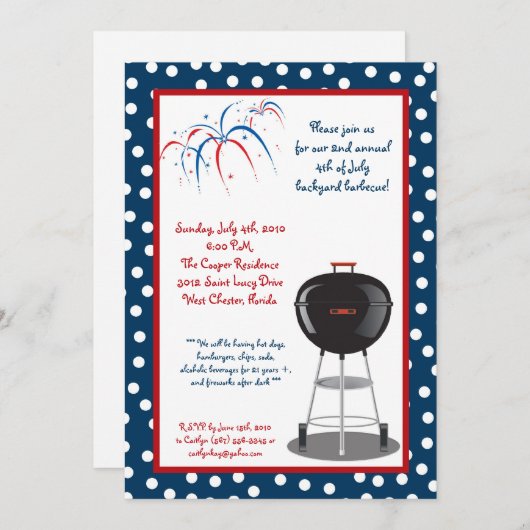 Please join us
for our 2nd annual
4th of July
backyard barbecue!
Sunday, July 4th, 2010
6:00 P.M.
The Cooper Residence
3012 Saint Lucy Drive
West Chester, Florida
*** We will be having hot dogs,
hamburgers, chips, soda,
alcoholic beverages for 21 years +,
and fireworks after dark ***
R.S.V.P. by June 15th, 2010
to Caitlyn (567) 555-3345 or
caitlynkay@yahoo.com